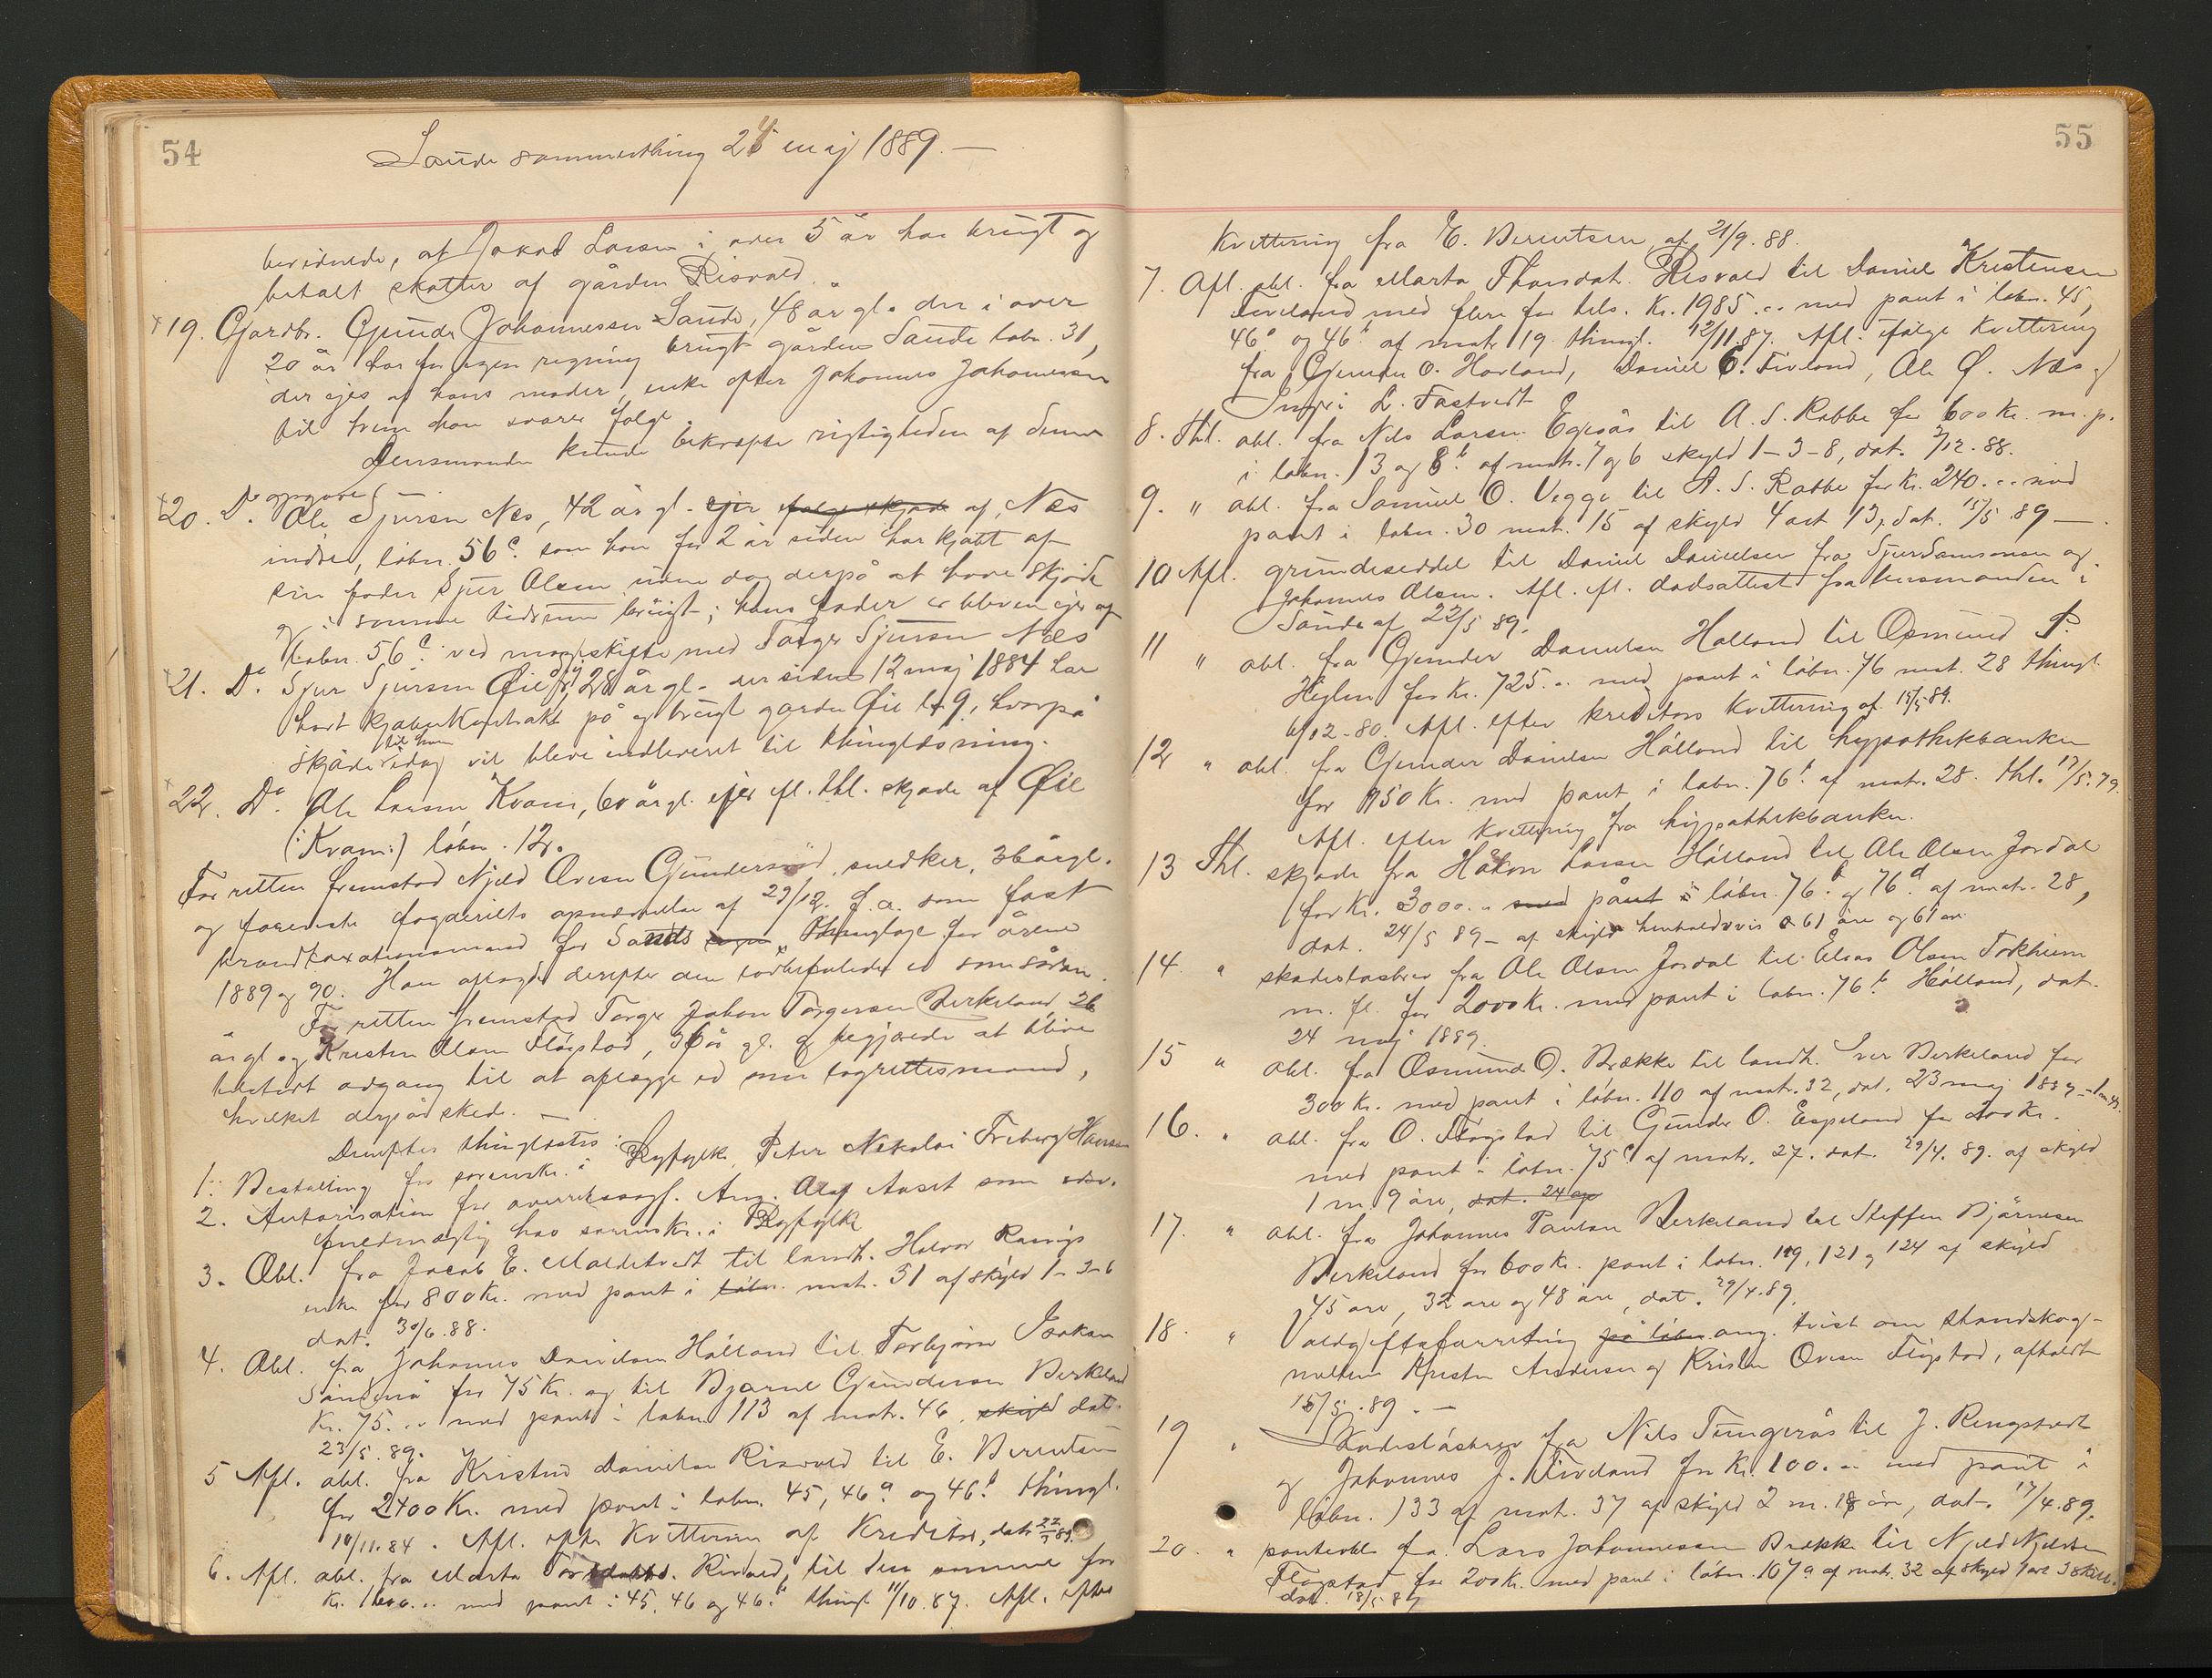 54
Saude sommerthing 24 maj 1889. —
bevidnede, at Jakob Larsen i over 5 år har brugt og
betalt skatter af gården Risvold.
19. Gjardbr. Gunder Johannessen Saude, 48 år gl. der i over
20 år har for egen regning brugt gården Saude løbn. 31,
der ejes af hans moder, enke efter Johannes Johannessen
til hvem han svarer følge.
Lensmanden kunde bekræfte rigtigheden af denne
opgave. —
20. Do. Ole Sjursen Næs, 42 år gl. ejer ifølge skjøde af Næs
indre, løbn. 56c. som han for 2 år siden har kjøbt af
sin fader Sjur Olsen uden dog derpå at have skjøde
og i samme tidsrum brugt; hans fader er bleven ejer af
løbn. 56c. ved mageskifte med Torger Sjursen Næs
21. Do. Sjur Sjursen Øie, 28 år gl. der siden 12 maj 1884 har
havt kjøbekontrakt på og brugt garden Øie l. 9, hvorpå
skjøde til ham idag vil blive indleveret til thinglæsning.
22. Do. Ole Larsen Kvam, 60 år gl. ejer ifl. thl. skjøde af Øie
(: Kvam :) løbn. 12.
For retten fremstod Njeld Ovesen Gundersrød, snedker, 36 årgl.
og foreviste fogderiets opnævnelse af 29/12. f. a. som fast
brandtaxationsmand for Sands thinglag for årene
1889 og 90. Han aflagde derefter den lovbefalede ed som sådan.
For retten fremstod Torger Johan Torgersen Birkeland, 26
år gl. og Kristen Olsen Fløgstad, 36 år gl. og begjærede at blive
tilstedt adgang til at aflægge ed som lagrettesmand,
hvilket derpå skede. —
Derefter thinglæstes:
1. Bestalling for sorenskr. i Ryfylke, Peter Nikolai Friberg Hansen
2. Autorisation for overretssagf. Ang. Olaf Aaset som edsv.
fuldmægtig hos sorenskr. i Ryfylke
3. Obl. fra Jacob E. Maldetvedt til landh. Halvor Ranvigs
enke for 800 Kr. med pant i løbn. mat. 51 af skyld 1-3-6
dat. 30/6.88.
4. Obl. fra Johannes Danielsen Hålland til Torbjørn Isaksen
Sandenå for 75 Kr. og til Bjarne Gundersen Birkeland
Kr. 75. .. med pant i løbn. 113 af matr. 46, skyld dat.
23/5.89.
5 Afl. obl. fra Kristen Danielsen Risvold til E. Berentsen
for 2400 Kr. med pant i løbn. 45, 46a. og 46b. thingl.
10/11.84. Afl. efter kvittering af kreditor, dat. 22/5 89.
6. Afl. obl. fra Marta Torsdatter Risvold til den samme for
Kr. 1600. .. med pant i 45, 46 og 46b. thingl 11/10.87. Afl. efter
55
Kvittering fra E. Berentsen af 21/9. 88.
7. Afl. obl. fra Marta Thorsdat. Risvold til Daniel Kristensen
Tiveland med flere for tils. Kr. 1985 .. med pant i løbn. 45,
46a og 46b. af matr 19. thingl. 12/11.87. Afl. ifølge Kvittering
fra Gunder O. Havland, Daniel C. Tivland, Ole Ø. Næs og
Ingeri L. Tastvedt
8. Thl. obl. fra Nils Larsen Egesås til A. S. Rabbe for 600 Kr. m. p.
i løbn. 13 og 8b. af matr. 7 og 6 skyld 1-3-8, dat. 7/12. 88.
9. " obl. fra Samuel O. Vegge til A. S. Rabbe for Kr. 240. .. med
pant i løbn. 30 mat. 15 af skyld 4 ort 13, dat. 15/5 89 —
10 Afl. grundeseddel til Daniel Danielsen fra Sjur Samsonsen og
Johannes Olsen. Afl. ifl. dødsattest fra lensmanden i
Saude af 22/5 89.
11 " obl. fra Gunder Danielsen Halland til Osmund P.
Heglen for Kr. 725. .. med pant i løbn. 76 mat. 28 thingl.
6/12-80. Afl. efter kreditors kvittering af 15/5 89.
12 " obl. fra Gunder Danielsen Hålland til hypothekbanken
for 950 Kr. med pant i løbn. 76b. af matr. 28. thl. 17/5.79.
Afl. efter kvittering fra hypothekbanken.
13 Thl. skjøde fra Håkon Larsen Hålland til Ole Olsen Jordal
for Kr. 3000. .. med pant i løbn. 76b. og 76d. af matr. 28,
dat. 24/5 89 — af skyld henholdsvis 61 øre og 61 øre
14 " skadesløsbrev fra Ole Olsen Jordal til Elias Olsen Tokheim
m. fl. for 2000 Kr. med pant i løbn. 76b. Hålland, dat.
24 maj 1889.
15 " obl. fra Osmund O. Brække til landh. Iver Birkeland for
300 Kr. med pant i løbn. 110 af matr. 32, dat. 23 maj 1889
16. " obl. fra O. Fløgstad til Gunder O. Espeland for 200 Kr.
med pant i løbn. 75c af matr. 27. dat. 29/4. 89. af skyld
1 m 9 øre, dat. 24 ap
17. " obl. fra Johannes Paulsen Birkeland til Steffen Bjørnsen
Birkeland for 600 Kr. pant i løbn. 119, 121 og 124 af skyld
45 øre, 32 øre og 48 øre, dat. 29/4.89.
18. " Voldgiftsforretning på løbn ang. tvist om strandskog
mellem Kristen Andersen og Kristen Ovesen Fløgstad, afholdt
15/5.89. —
19 " Skadesløsbrev fra Nils Tungerås til J. Ringstvedt
og Johannes J. Tiveland for Kr. 100. .. med pant i
løbn. 133 af mat. 37 af skyld 2 m. 18 øre, dat. 17/4.89.
20. " panteobl. fra Lars Johannessen Brække til Njeld Njeldsen
Fløgstad for 200 Kr. med pant i løbn. 107a af matr. 32 af skyld 1 ort 3 skill.
dat. 18/5 89